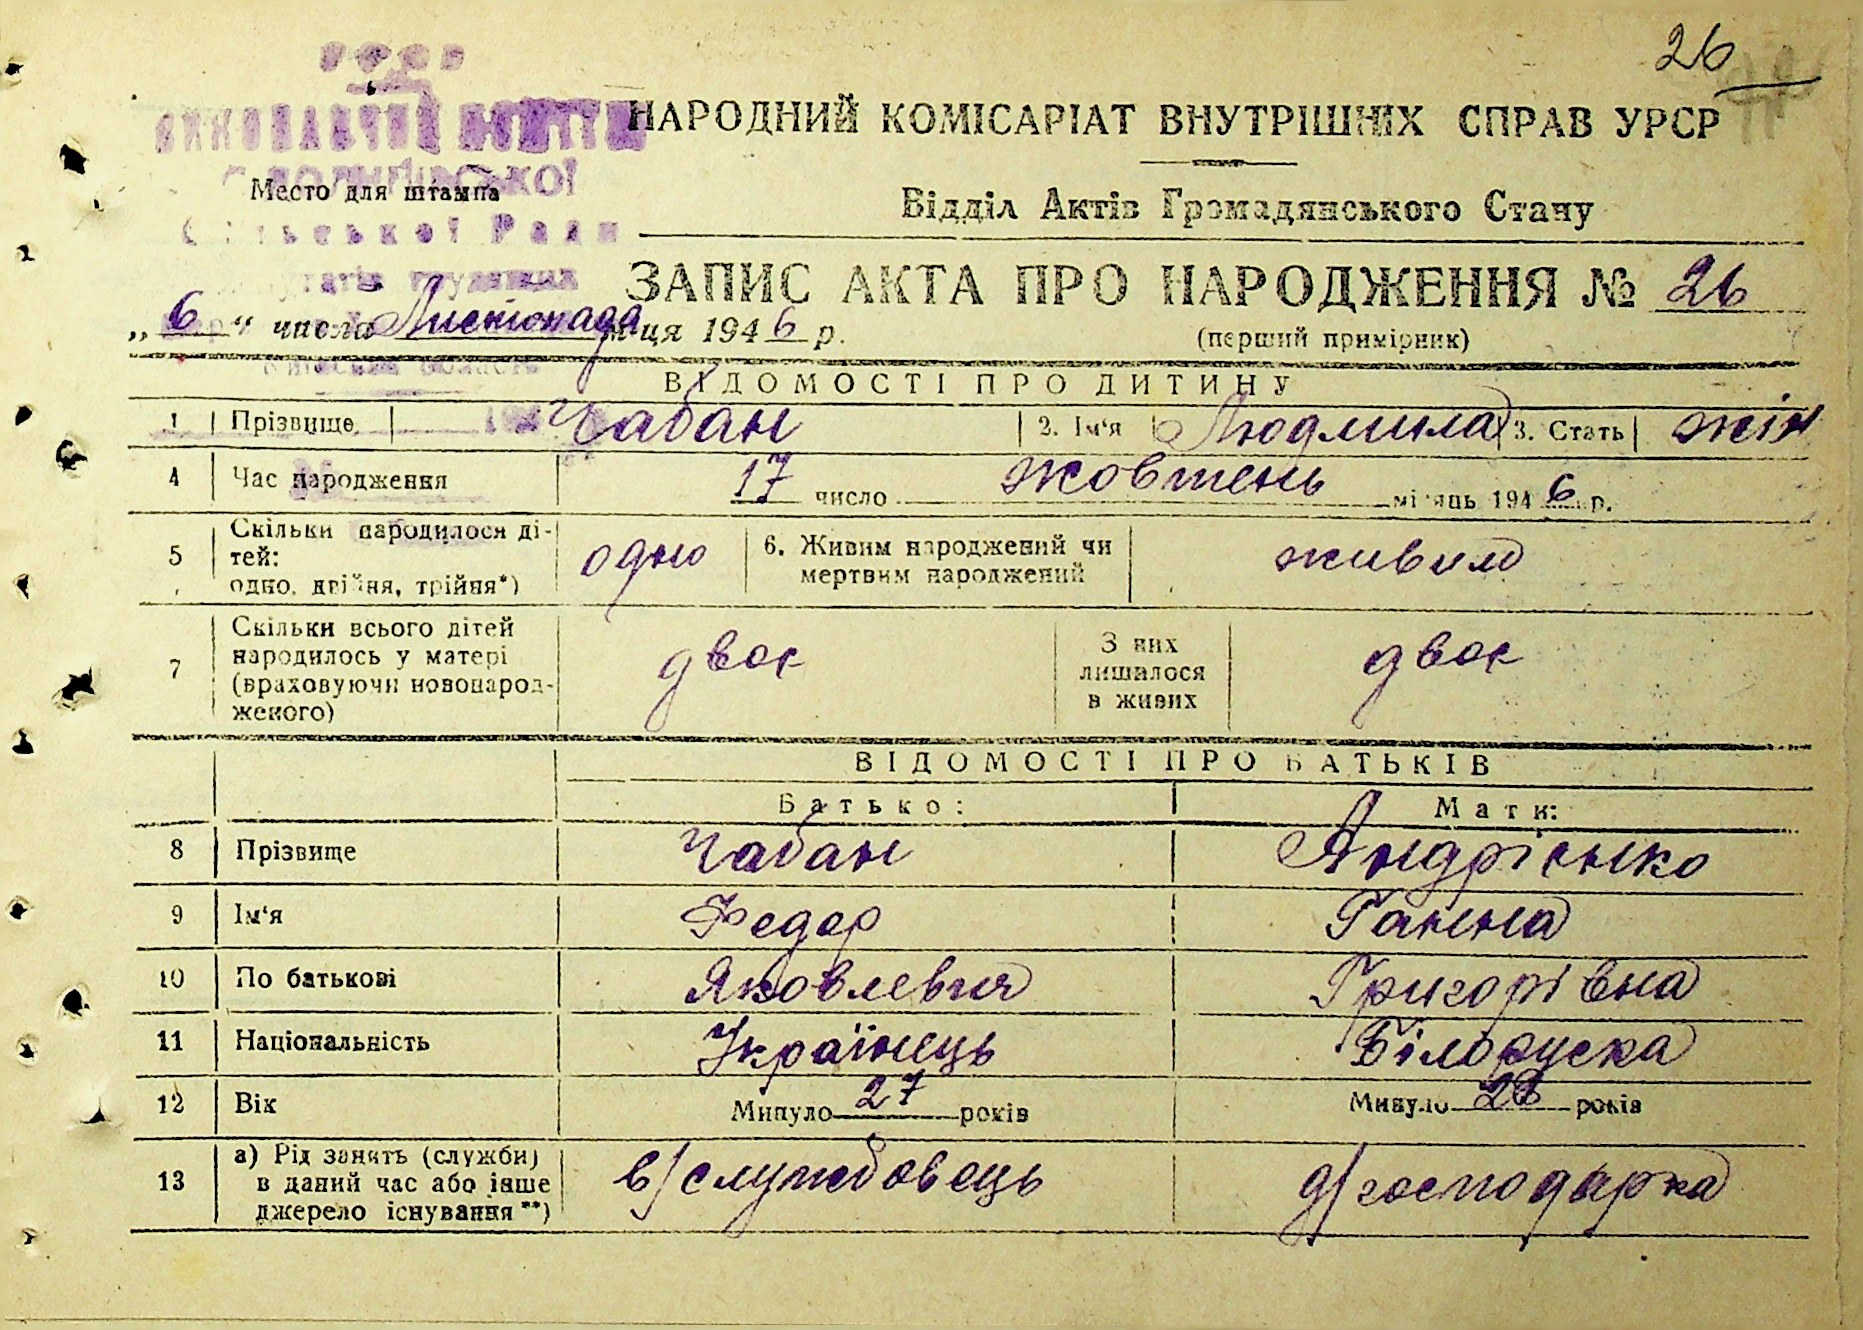 26
УРСР
НАРОДНИЙ КОМІСАРІАТ ВНУТРІШНІХ СПРАВ УРСР
Место для штампа
Відділ Актів Громадянського Стану
Сільської Ради
ЗАПИС АКТА ПРО НАРОДЖЕННЯ № 26
„ 6 “ числа Листопада м-ця 1946 р.
(перший примірник)
ВІДОМОСТІ ПРО ДИТИНУ
1 Прізвище Чабан 2. Ім‘я Людмила 3. Стать жін
4 Час народження 17 число жовтень місяць 1946 р.
5 Скільки народилося ді-
тей:
одно, двійня, трійня*) одно 6. Живим народжений чи
мертвим народжений живим
7 Скільки всього дітей
народилось у матері
(враховуючи новонарод-
женого) двоє З них
лишилося
в живих двоє
ВІДОМОСТІ ПРО БАТЬКІВ
Батько: Мати:
8 Прізвище Чабан Андрієнко
9 Ім‘я Федор Ганна
10 По батькові Яковлевич Григорівна
11 Національність Українець Білоруска
12 Вік Минуло 27 років Минуло років
13 а) Рід занять (служби)
в даний час або інше
джерело існування**) в/службовець д/господарка